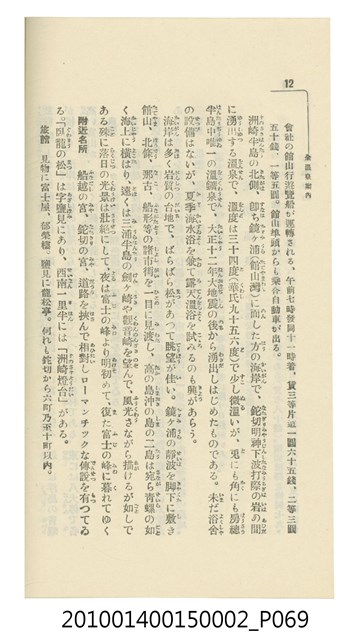 12
全温泉案内
會社の館山行遊覽船が運轉される 午前七時發同十一時着、賃三等片道一圓六十五錢、二等三圓
五十錢、一等五圓。館山埠頭からも乘合自動車が出る。
洲崎半島の北側、卽ち鏡ヶ浦(館山灣)に面した方の海岸で、鉈切明神下波打際の岩の間
に湧出する溫泉で、溫度は三十四度(華氏九十五六度)で少し微溫いが、兎にも角にも房總
半島中唯一の溫鑛泉で、大正十二年大地震の後から湧出しはじめたものである。未だ浴舍
の設備はないが、夏季海水浴を兼て露天溫浴を試みるのも興があらう。
海岸は多く岩質の台地で、ばらばら松があつて眺望が佳い。鏡ヶ浦の靜波を脚下に敷き
館山、北條、那古、船形等の諸市街を一目に見渡し、高の島沖の島の二島は宛ら靑螺の如し
く海上に橫はり、遠くは三浦半島の劍ヶ崎や觀音崎を望んで、風光さながら描けるが如しで
ある殊に落日の光景は壯絕にして、夜は富士の峰より明初めて、復た富士の峰に暮れてゆく
附近名所 船越の宮、鉈切の宮、道路を挾んで相對しローマンチックな傳設を有つてゐ
る。「臥龍の松」は字鹽見にあり、西南一里半には「洲崎燈台」がある。
旅館 見物に富士屋、鹽見に龍松亭。何れも鉈切から六町乃至十町以內。
201001400150002_P069